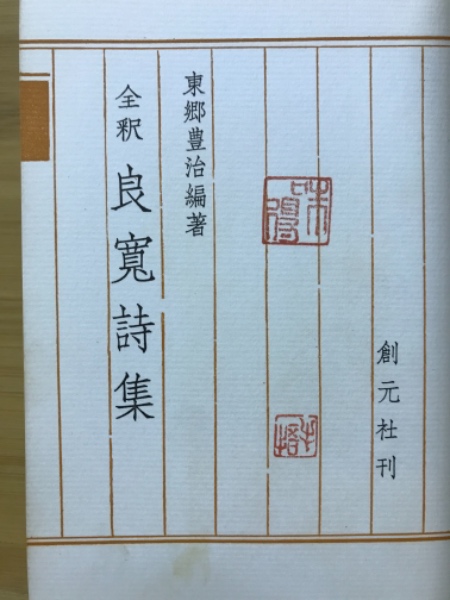 創元社刊
東郷豊治編著
全釈 良寛詩集